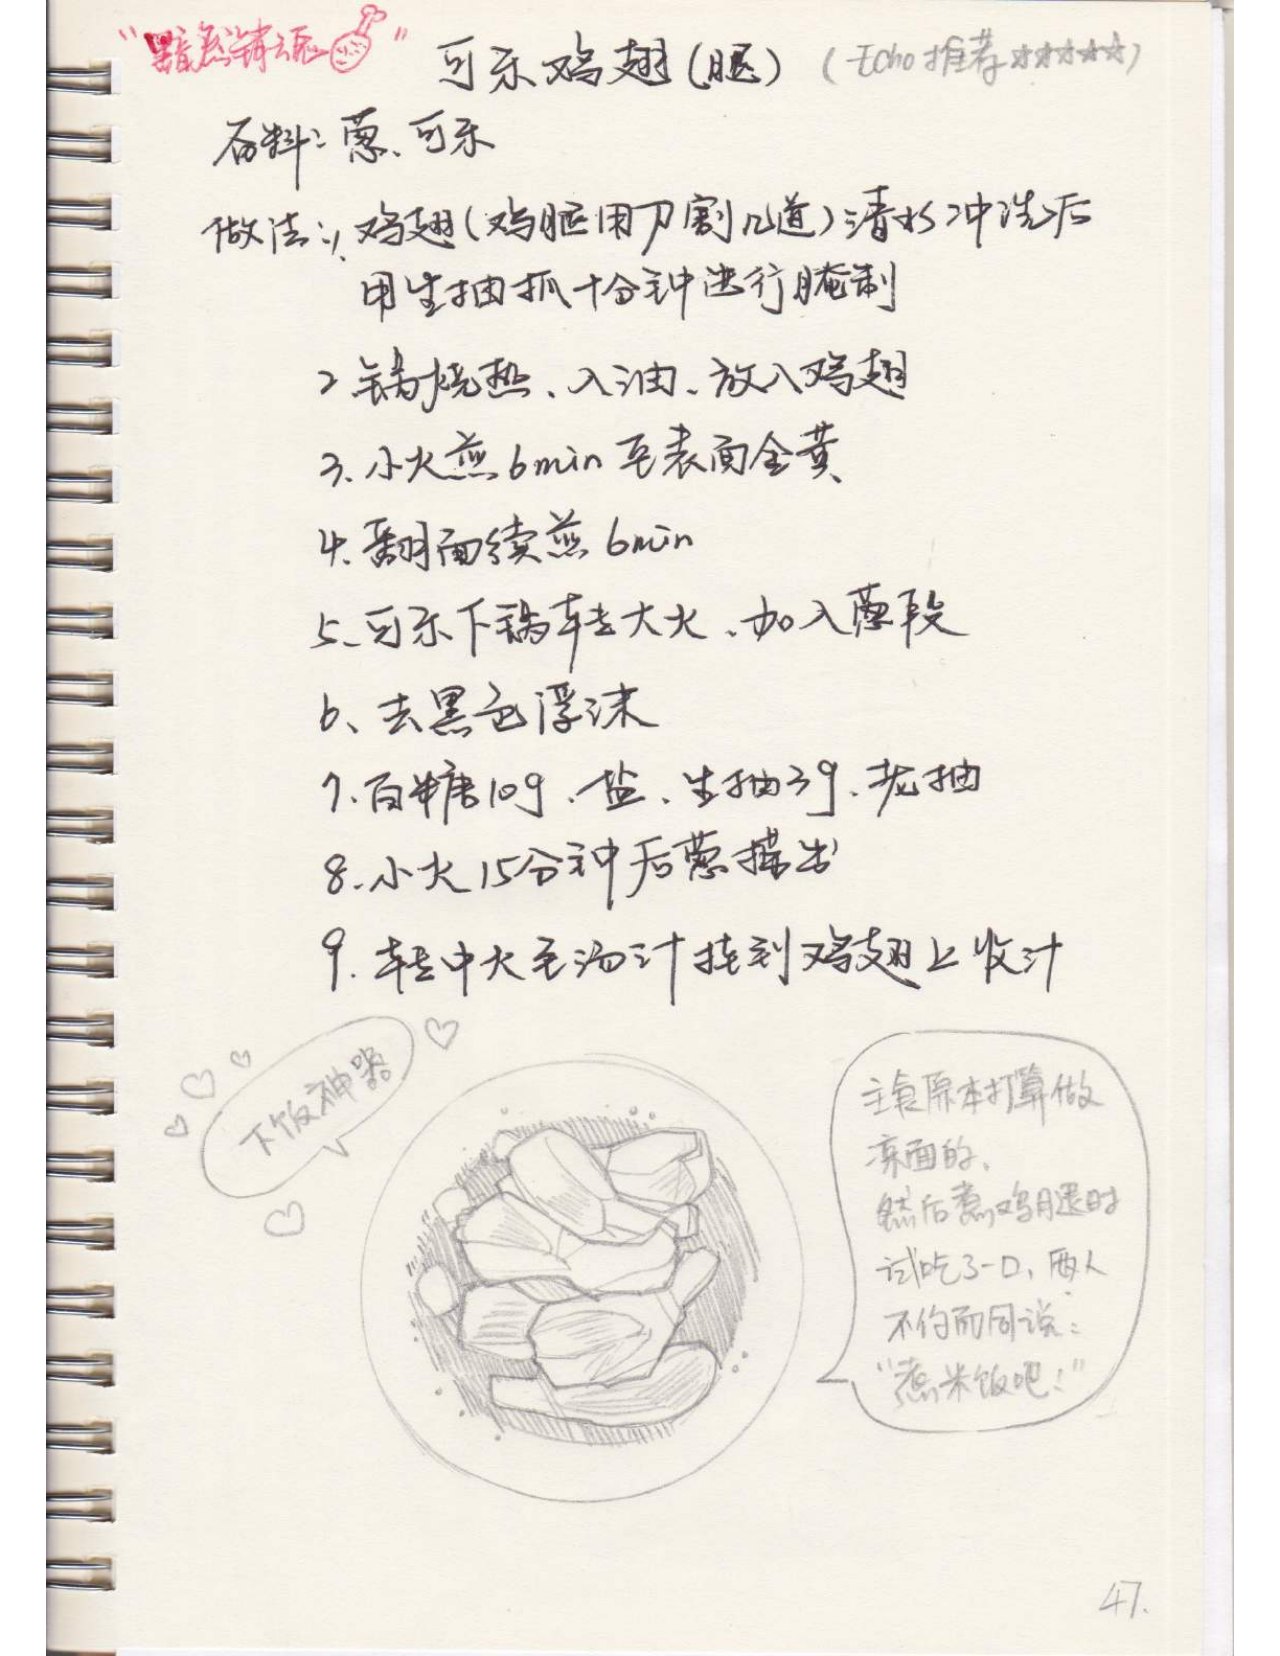 "黯然销魂"
可乐鸡翅(腿) (Echo推荐☆☆☆☆☆)
召料:葱、可乐
做法:1、鸡翅(鸡腿用刀割几道)清水冲洗后
用生抽抓十分钟进行腌制
2.锅烧热、入油、放入鸡翅
3.小火煎6min至表面金黄、
4.翻面续煎6min
5、可乐下锅转大火、加入葱段
6、去黑色浮沫
7.白糖10g、盐、生抽3g、老抽
8.小火15分钟后葱捞出
9.转中火至汤汁挂到鸡翅上收汁
下饭神器
主食原本打算做
凉面的、
然后煮鸡腿时
试吃了一口、两人
不约而同说:
"煮米饭吧!"
47.